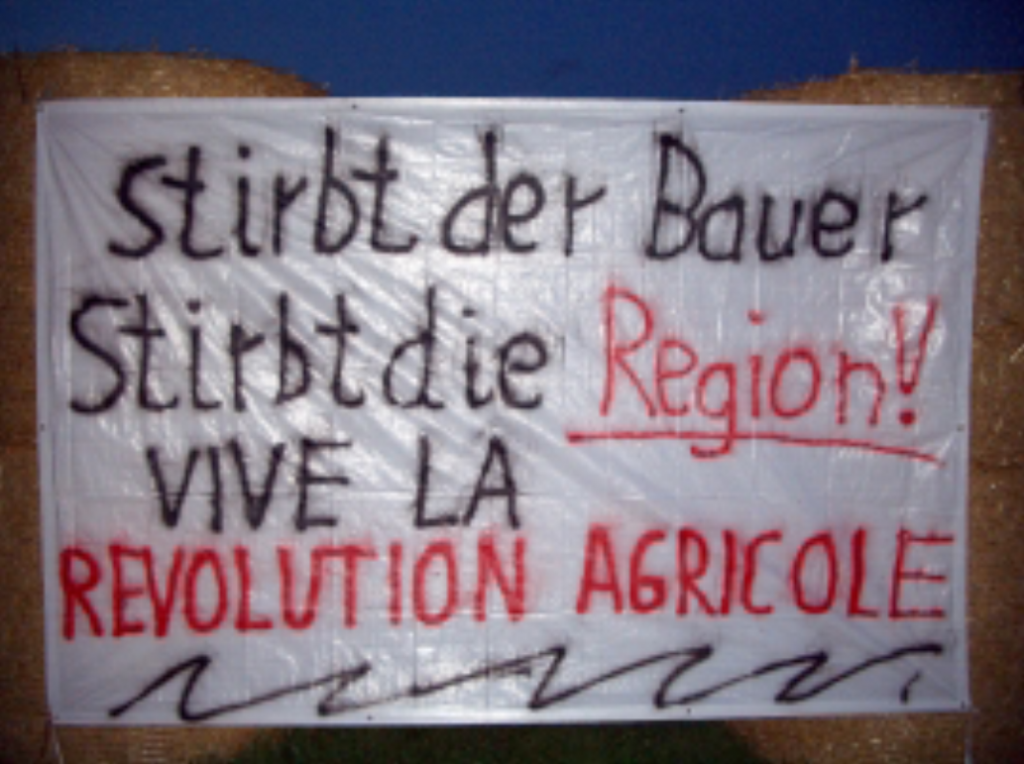 Stirbt der Bauer
Stirbt die Region!
VIVE LA
REVOLUTION AGRICOLE